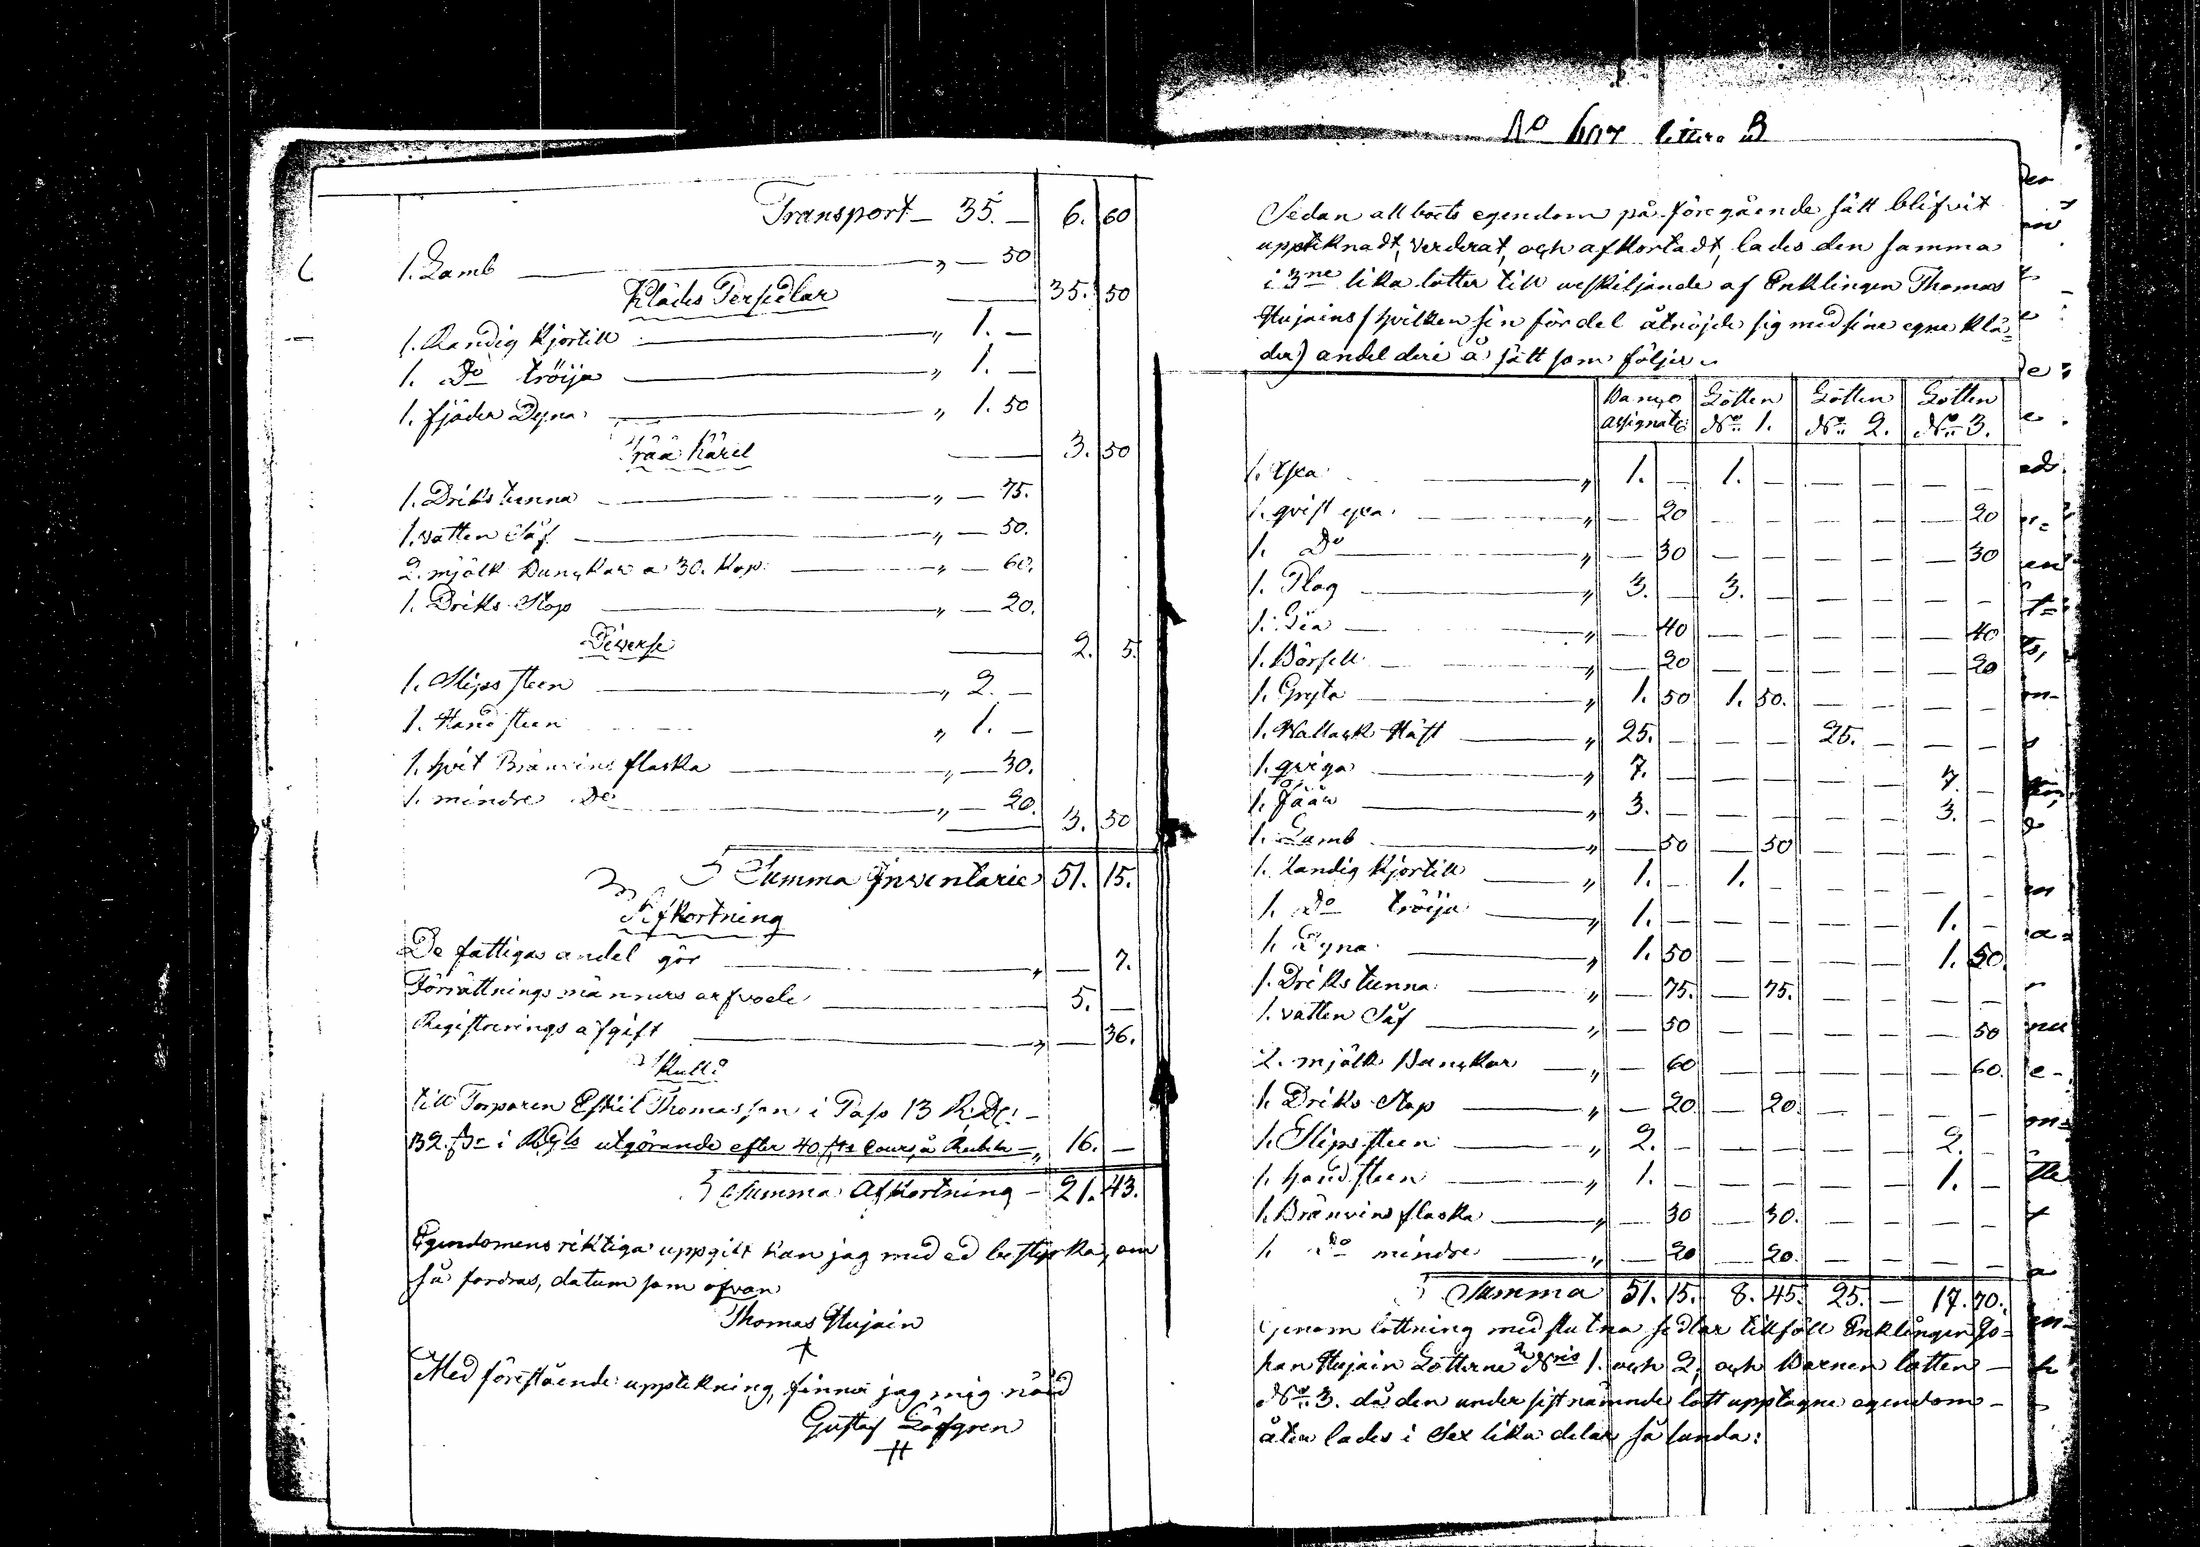 Transport — 35. — 6. 60
1. Lamb — „ — 50
Klädes Persedlar — 35. 50
1. Randig Kjortill — „ 1. —
1. Do tröija — „ 1. —
1. fjäder Dyna — „ 1. 50
Trää Käril — 3. 50
1. Driks tunna — „ — 75.
1. vatten Såf — „ — 50.
2. mjölk Bunckar a 30. Kop: — „ — 60.
1. Driks Stop — „ — 20.
Diverse — 2. 5.
1. Slips steen — „ 2. —
1. Hand steen „ 1. —
1. hvit Bränvins flaska — „ — 30.
1. mindre Do — „ — 20.
— 3. 50
Summa Inventarie 51. 15.
Afkortning
De fattigas andel gör — „ — 7.
Förrättnings männers arfvode — 5. —
Registrerings afgift — „ — 36.
Skuld
till Torparen Eskil Thomasson i Paso 13 R:D: —
B2. i RGls utgörande efter 40 Cours, a Rubln — „ 16. —
Summa Afkortning — 21. 43.
Egendomens riktiga uppgift kan jag med ed bestyrka, om
så fordras, datum som ofvan
Thomas Hujain
Med förestående upptekning, finner jag mig nöjd
Gustaf Löfgren
No 607 littera B
Sedan all boets egendom på föregående sätt blifvit
upptiknadt, verderat, och afkortadt, lades den samma
i 3ne lika lotter till urskiljande af Enklingen Thomas
Hujains (hvilken sin fördel åtnöjde sig med sine egne klä=
der) andel deri å sätt som följer.
Banco assignat: Lotten No 1. Lotten No 2. Lotten No 3.
1. Yxa — „ 1. — 1. — — — — —
1. qvist yxa — „ — 20 — — — — — 20
1. Do — „ — 30 — — — — — 30
1. Plog — „ 3. — 3. — — — — —
1. Lia — „ — 40 — — — — — 40
1. Börsell — „ — 20 — — — — — 20
1. Gryta — „ 1. 50 1. 50. — — — —
1. Wallack Häst — „ 25. — — — 25. — — —
1. qviga — „ 7. — — — — — 7. —
1. Fåår — „ 3. — — — — — 3. —
1. Lamb — „ — 50 — 50 — — — —
1. Randig Kjortill — „ 1. — 1. — — — — —
1. Do tröija — „ 1. — — — — — 1. —
1. Dyna — „ 1. 50 — — — — 1. 50.
1. Driks tunna — „ — 75. — 75. — — — —
1. vatten Såf — „ — 50 — — — — — 50
2. mjölk Bunckar — „ — 60 — — — — — 60.
1. Driks Stop — „ — 20. — 20. — — — —
1. Slips steen — „ 2. — — — — — 2. —
1. hand steen — „ 1. — — — — — 1. —
1. Bränvins flaska — „ — 30 — 30. — — — —
1. Do mindre — „ — 20 — 20. — — — —
Summa 51. 15. 8. 45. 25. — 17. 70.
Genom lottning med slutna sedlar tillföll Enklingen Jo=
han Hujain Lotterne Nris 1. och 2, och Barnen lotten —
No 3. då den under sistnämnde lott upptagne egendom —
åter lades i Sex lika delar så lunda: